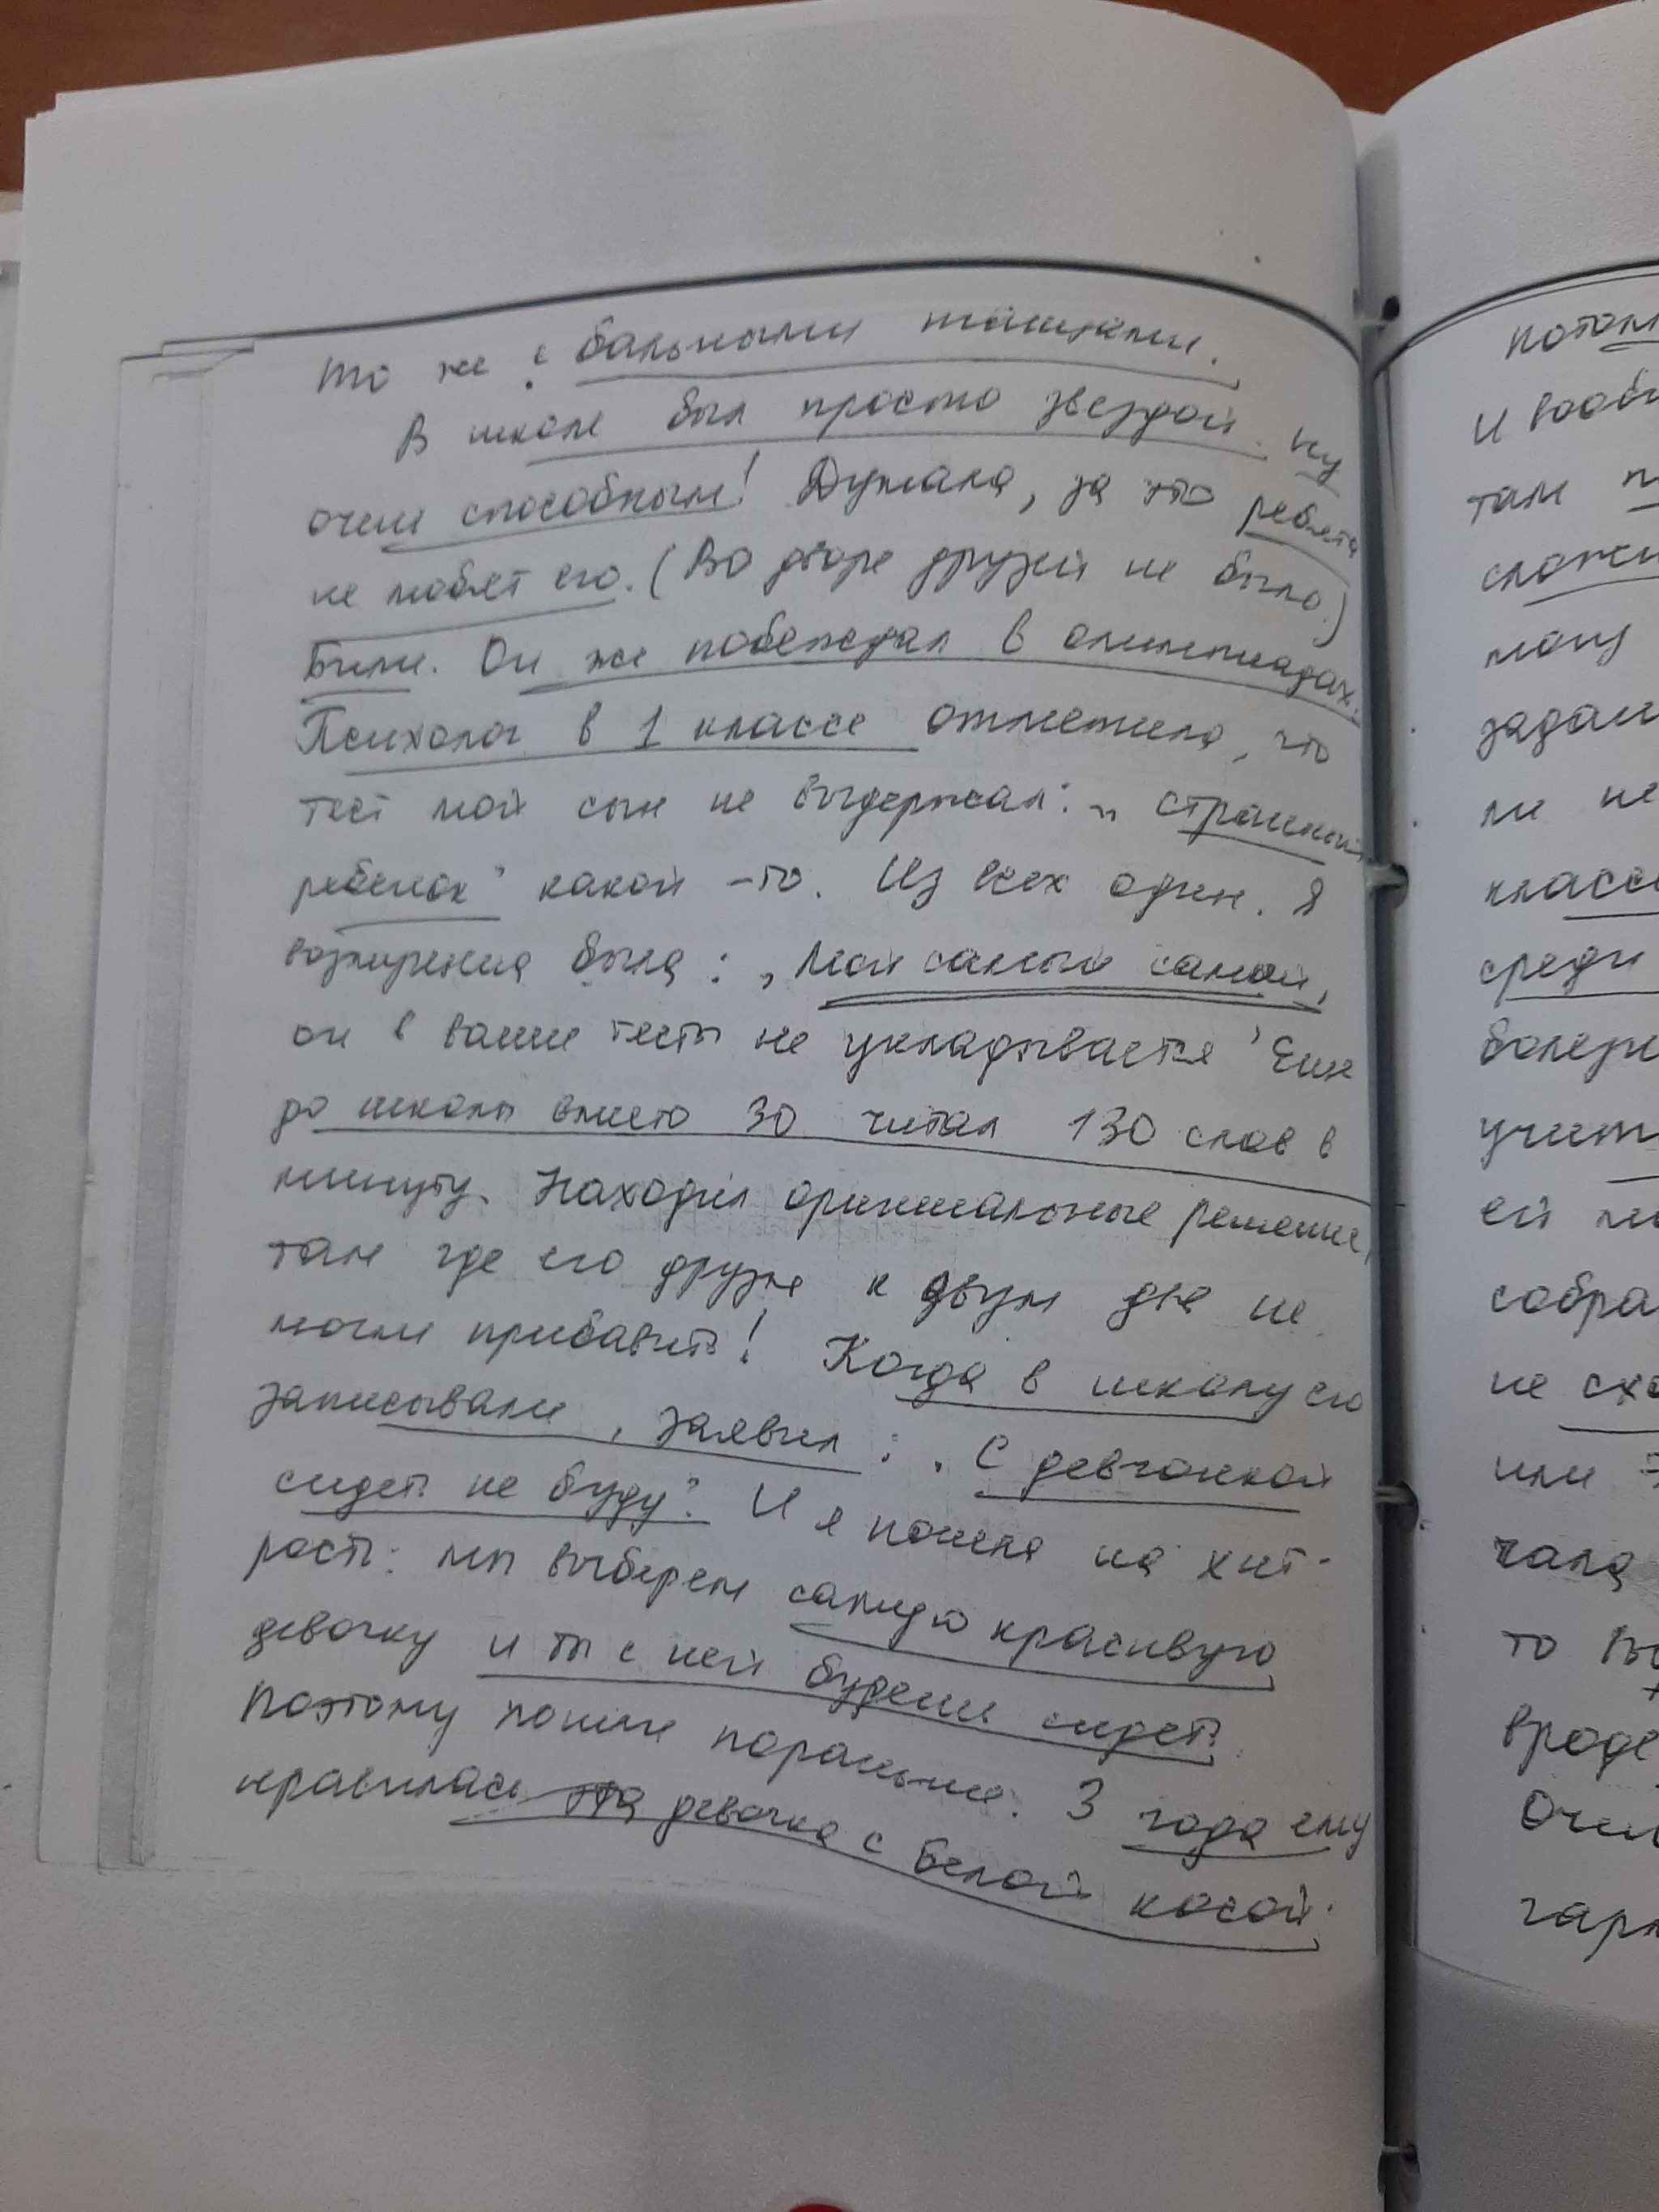 то же с бальными танцами.
В школе был просто звездой. Ну
очень способным! Думала, за это ребята
не любят его. (Во дворе друзей не было.)
Били. Он же побеждал в олимпиадах.
Психолог в 1 классе отметила, что
тест мой сын не выдержал: „странный
ребенок" какой-то. Из всех один. Я
возмущена была: „Мой самый самый,
он в ваши тесты не укладывается" Еще
до школы вместо 30 читал 130 слов в
минуту. Находил оригинальные решения,
там где его друзья к двум два не
могли прибавить! Когда в школу его
записывали, заявил: „С девчонкой
сидеть не буду". И я пошла на хит-
рость: мы выберем самую красивую
девочку и ты с ней будешь сидеть.
Поэтому пошли пораньше. 3 года ему
нравилась эта девочка с белой косой.
потом
и вооб
там п
сложн
могу
задан
ли не
класс
среди
болезн
учит
ей
собра
не схо
или
чала
то
вроде
Очен
гарм